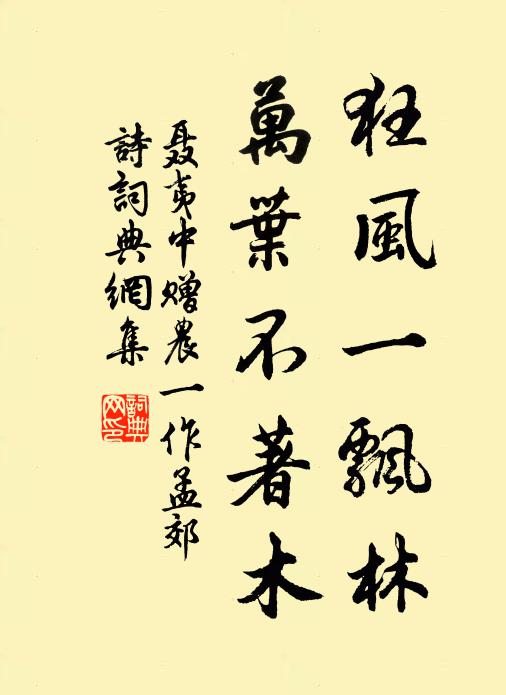 狂風一飄林
萬葉不著木
聂夷中赠農一作孟郊
詩詞典網集
詞典网印